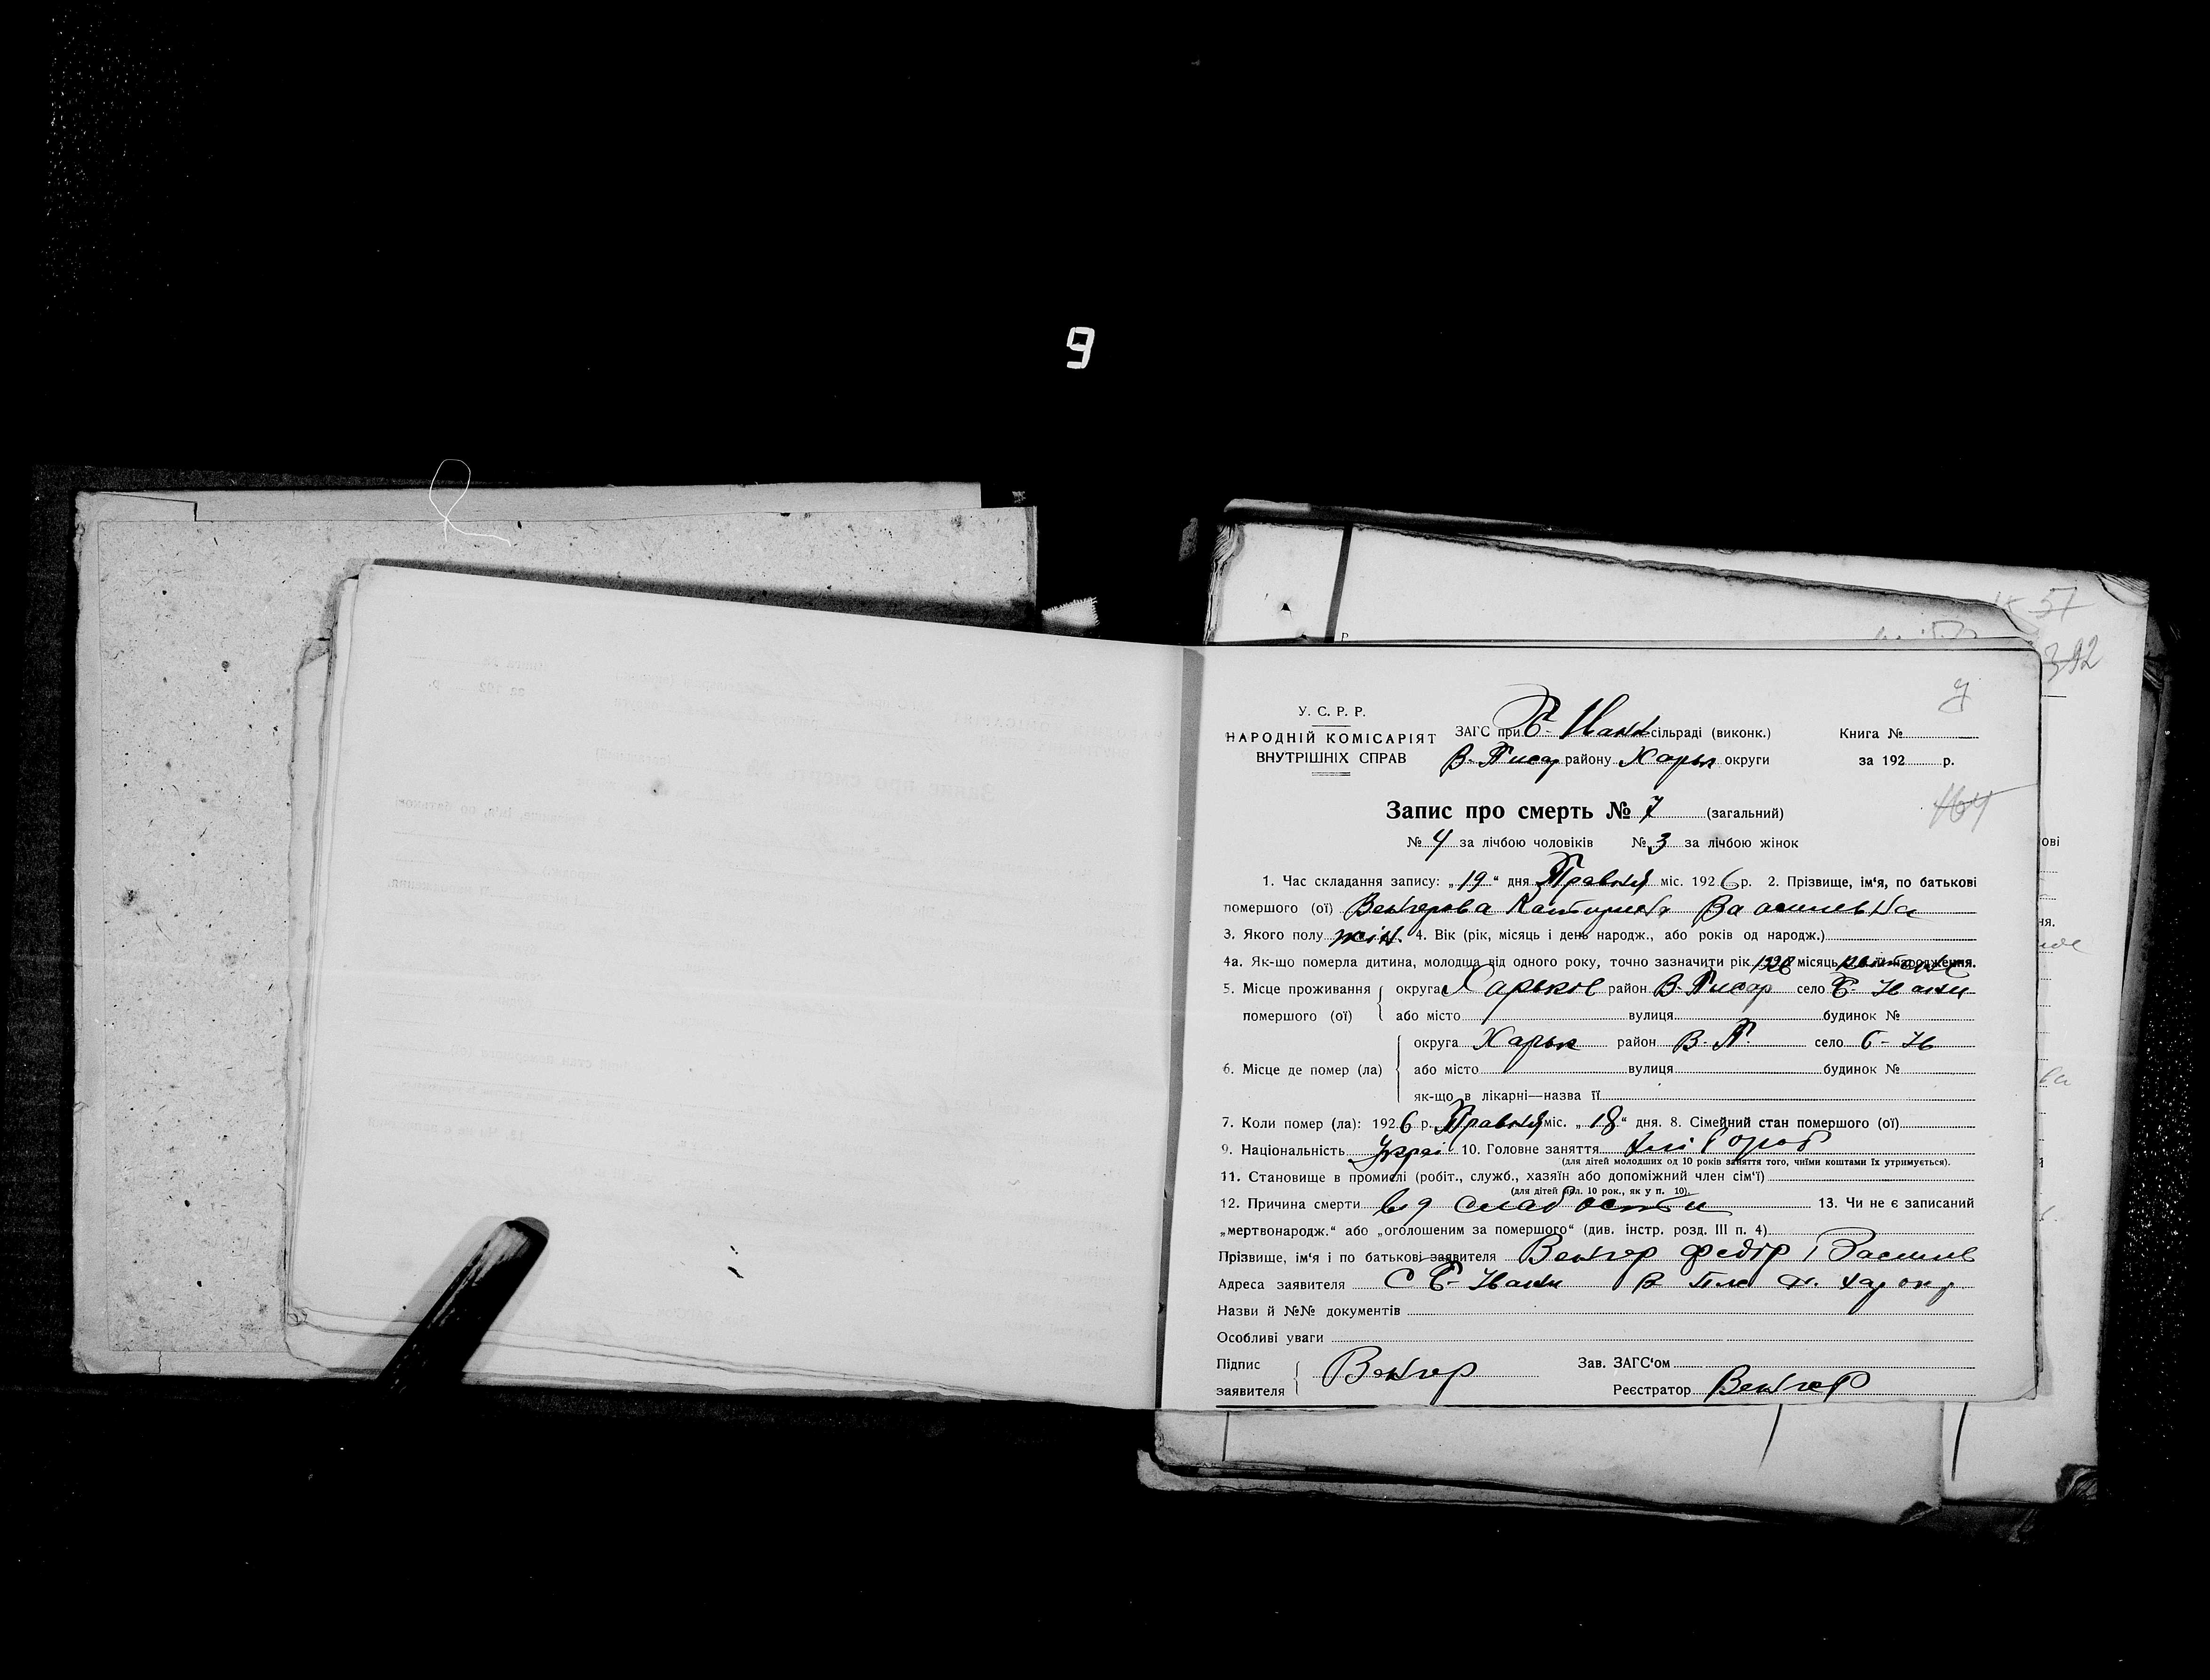 9
57
392
7
У. С. Р. Р.
НАРОДНІЙ КОМІСАРІЯТ
ВНУТРІШНІХ СПРАВ
ЗАГС при Б- Иван сільраді (виконк.)
В. Писар району Харьк округи
Книга №
за 192 р.
164
Запис про смерть № 7 (загальний)
№ 4 за лічбою чоловіків № 3 за лічбою жінок
1. Час складання запису: „19“ дня Травня міс. 1926 р. 2. Прізвище, ім‘я, по батькові
помершого (ої) Венгерова Катирина Ва асильвна
3. Якого полу жін. 4. Вік (рік, місяць і день народж., або років од народж.)
4а. Як-що померла дитина, молодша від одного року, точно зазначити рік 1926 місяць її народження.
5. Місце проживання помершого (ої) округа Харьков район В. Писар село Б- Ивани
або місто вулиця будинок №
6. Місце де помер (ла) округа Харьк район В. П. село Б- Ив
або місто вулиця будинок №
як-що в лікарні—назва її
7. Коли помер (ла): 1926 р. Травня міс. „18“ дня. 8. Сімейний стан помершого (ої)
9. Національність Украі 10. Головне заняття
(для дітей молодших од 10 років заняття того, чиїми коштами їх утримується).
11. Становище в промислі (робіт., служб., хазяїн або допоміжний член сім‘ї)
(для дітей мол. 10 рок., як у п. 10).
12. Причина смерти від слабости 13. Чи не є записаний
„мертвонародж.“ або „оголошеним за помершого“ (див. інстр. розд. III п. 4)
Прізвище, ім‘я і по батькові заявителя Венгер Федір Василів
Адреса заявителя С Б- Ивани В
Назви й №№ документів
Особливі уваги
Підпис заявителя Венгер
Зав. ЗАГС‘ом
Реєстратор Венгер